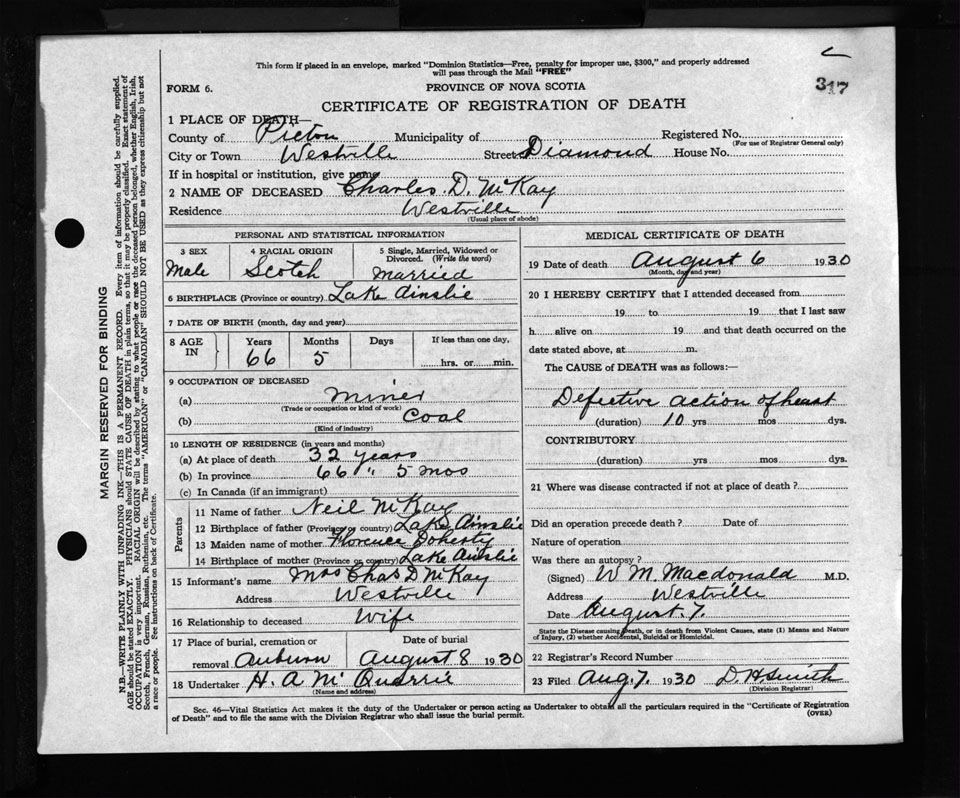 This form if placed in an envelope, marked "Dominion Statistics—Free, penalty for improper use, $300," and properly addressed
will pass through the Mail "FREE"
317
FORM 6.
PROVINCE OF NOVA SCOTIA
CERTIFICATE OF REGISTRATION OF DEATH
1 PLACE OF DEATH—
County of Pictou Municipality of Registered No.
(For use of Registrar General only)
City or Town Westville Street Diamond House No.
If in hospital or institution, give name
2 NAME OF DECEASED Charles D. McKay
Residence Westville
(Usual place of abode)
PERSONAL AND STATISTICAL INFORMATION
3 SEX 4 RACIAL ORIGIN 5 Single, Married, Widowed or
Divorced. (Write the word)
Male Scotch Married
6 BIRTHPLACE (Province or country) Lake Ainslie
7 DATE OF BIRTH (month, day and year)
8 AGE IN Years Months Days If less than one day,
66 5 hrs. or min.
9 OCCUPATION OF DECEASED
(a) Miner
(Trade or occupation or kind of work)
(b) Coal
(Kind of industry)
10 LENGTH OF RESIDENCE (in years and months)
(a) At place of death 32 years
(b) In province 66 " 5 mos
(c) In Canada (if an immigrant)
Parents
11 Name of father Neil McKay
12 Birthplace of father (Province or country) Lake Ainslie
13 Maiden name of mother Florence Doherty
14 Birthplace of mother (Province or country) Lake Ainslie
15 Informant's name Mrs Chas D McKay
Address Westville
16 Relationship to deceased Wife
17 Place of burial, cremation or Date of burial
removal Auburn August 8 1930
18 Undertaker H. A McQuarrie
(Name and address)
MEDICAL CERTIFICATE OF DEATH
19 Date of death August 6 1930
(Month, day and year)
20 I HEREBY CERTIFY that I attended deceased from
19 to 19 that I last saw
h alive on 19 and that death occurred on
date stated above, at m.
The CAUSE of DEATH was as follows:—
Defective action of heart
(duration) 10 yrs mos dys.
CONTRIBUTORY
(duration) yrs mos dys.
21 Where was disease contracted if not at place of death?
Did an operation precede death? Date of
Nature of operation
Was there an autopsy?
(Signed) W M. Macdonald M.D.
Address Westville
Date August. 7.
State the Disease causing Death, or in death from Violent Causes, state (1) Means and Nature
of Injury, (2) whether Accidental, Suicidal or Homicidal.
22 Registrar's Record Number
23 Filed Aug. 7. 1930 D. H Smith
(Division Registrar)
Sec. 46—Vital Statistics Act makes it the duty of the Undertaker or person acting as Undertaker to obtain all the particulars required in the "Certificate of Registration
of Death" and to file the same with the Division Registrar who shall issue the burial permit.
(OVER)
MARGIN RESERVED FOR BINDING
N.B.—WRITE PLAINLY WITH UNFADING INK—THIS IS A PERMANENT RECORD. Every item of information should be carefully supplied.
AGE should be stated EXACTLY. PHYSICIANS should STATE CAUSE OF DEATH in plain terms, so that it may be properly classified. Exact statement of
OCCUPATION is very important. RACIAL ORIGIN will be described by stating to what people or race the deceased person belonged, whether English, Irish,
Scotch, French, German, Russian, Ruthenian, etc. The terms "AMERICAN" or "CANADIAN" SHOULD NOT BE USED as they express citizenship but not
a race or people. See instructions on back of Certificate.